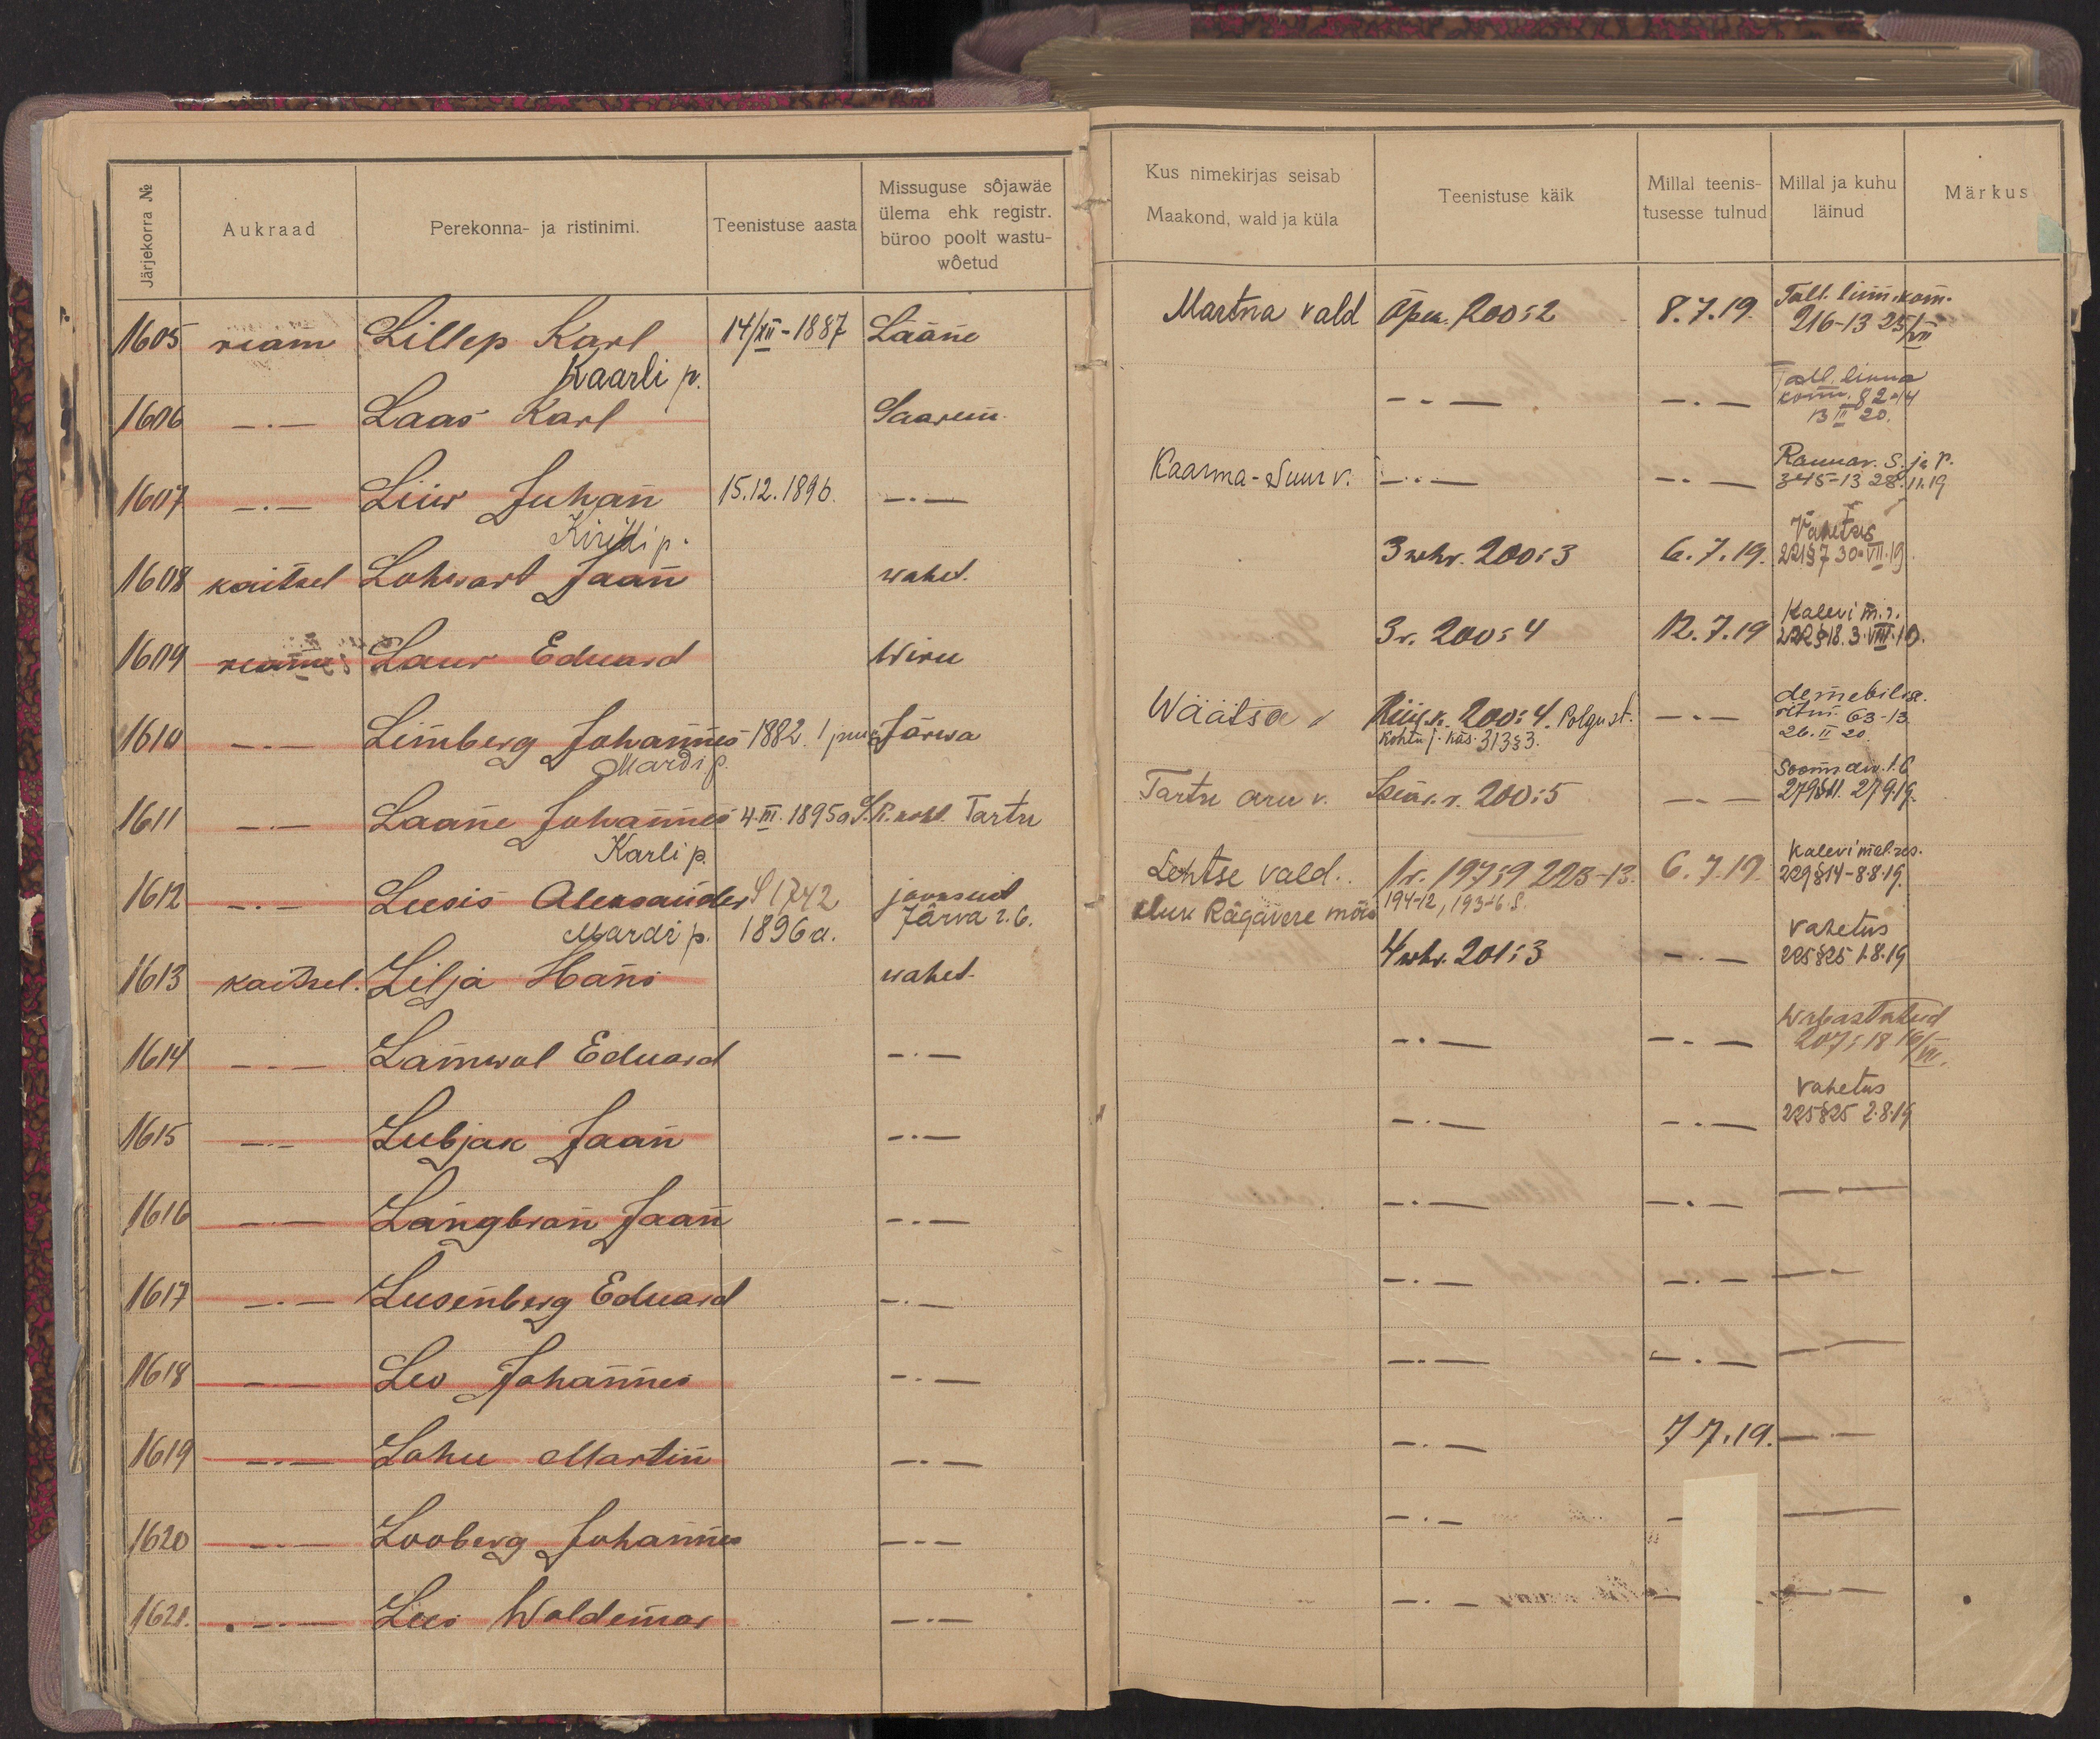 Järjekorra №
Aukraad
Perekonna- ja ristinimi.
Teenistuse aasta
Missuguse sõjawäe
ülema ehk registr.
büroo poolt wastu-
wõetud
Kus nimekirjas seisab
Maakond, wald ja küla
Teenistuse käik
Millal teenis-
tusesse tulnud
Millal ja kuhu
läinud
Märkus
1605 ream Lillep Karl 14/XII-1887 Lääne Martna vald Õpek. 200:2 8.7.19. Tall. linn. kom.
216-13 25/VII
Kaarli p.
1606 —.— Laas Karl Saarem. —.— —.— Tall. linna
komm. 82-14
13 II 20.
1607 —.— Liiw Juhan 15.12.1896. —.— Kaarma-Suur v. —.— —.— Rannav. S. ja P.
345-13 28.11.19
Kirilli p.
1608 kaitsel Lohwart Jaan wahet. 3 whr. 200:3 6.7.19. Vahetus
221§7 30.VII.19.
1609 ream Laur Eduard Wiru 3 r. 200:4 12.7.19 Kalevi m. r.
222§18. 3.VIII.19.
1610 —.— Limberg Johannes 1882. Järwa Wäätsa v 200:4. Polgust. —.— demobilis.
63-13
26.II 20.
Mardi p. kohtu j. käs. 313§3.
1611 —.— Laane Johannes 4.III.1895a S.R. Tartu Tartu aru v. 200:5 —.— Soom. div. 1.6
279§11. 27.9.19.
Karli p.
1612 —.— Lusis Aleksander S 1742 Järva r.b. Lehtse vald. 1 r. 197:9 223-13. 6.7.19. Kalevi mal. res.
229§14-8.8.19.
Mardi p. 1896 a. Rägavere mõis 194-12, 193-6.S.
1613 kaitsel. Lilja Hans wahet. 4 whr. 201:3 —.— vahetus
225§25 1.8.19
1614 —.— Lamwol Eduard —.— —.— —.— Wabastatud
207:18 16/VII.
1615 —.— Lubjak Jaan —.— —.— —.— vahetus
225§25 2.8.19
1616 —.— Langbran Jaan —.— —.— —.— —.—
1617 —.— Lusenberg Eduard —.— —.— —.— —.—
1618 —.— Leo Johannes —.— —.— —.— —.—
1619 —.— Lohu Martin —.— —.— 7 7.19. —.—
1620 —.— Looberg Johannes —.— —.— — ——
1621. —.— Lees Woldemar —.— —.— — —.—